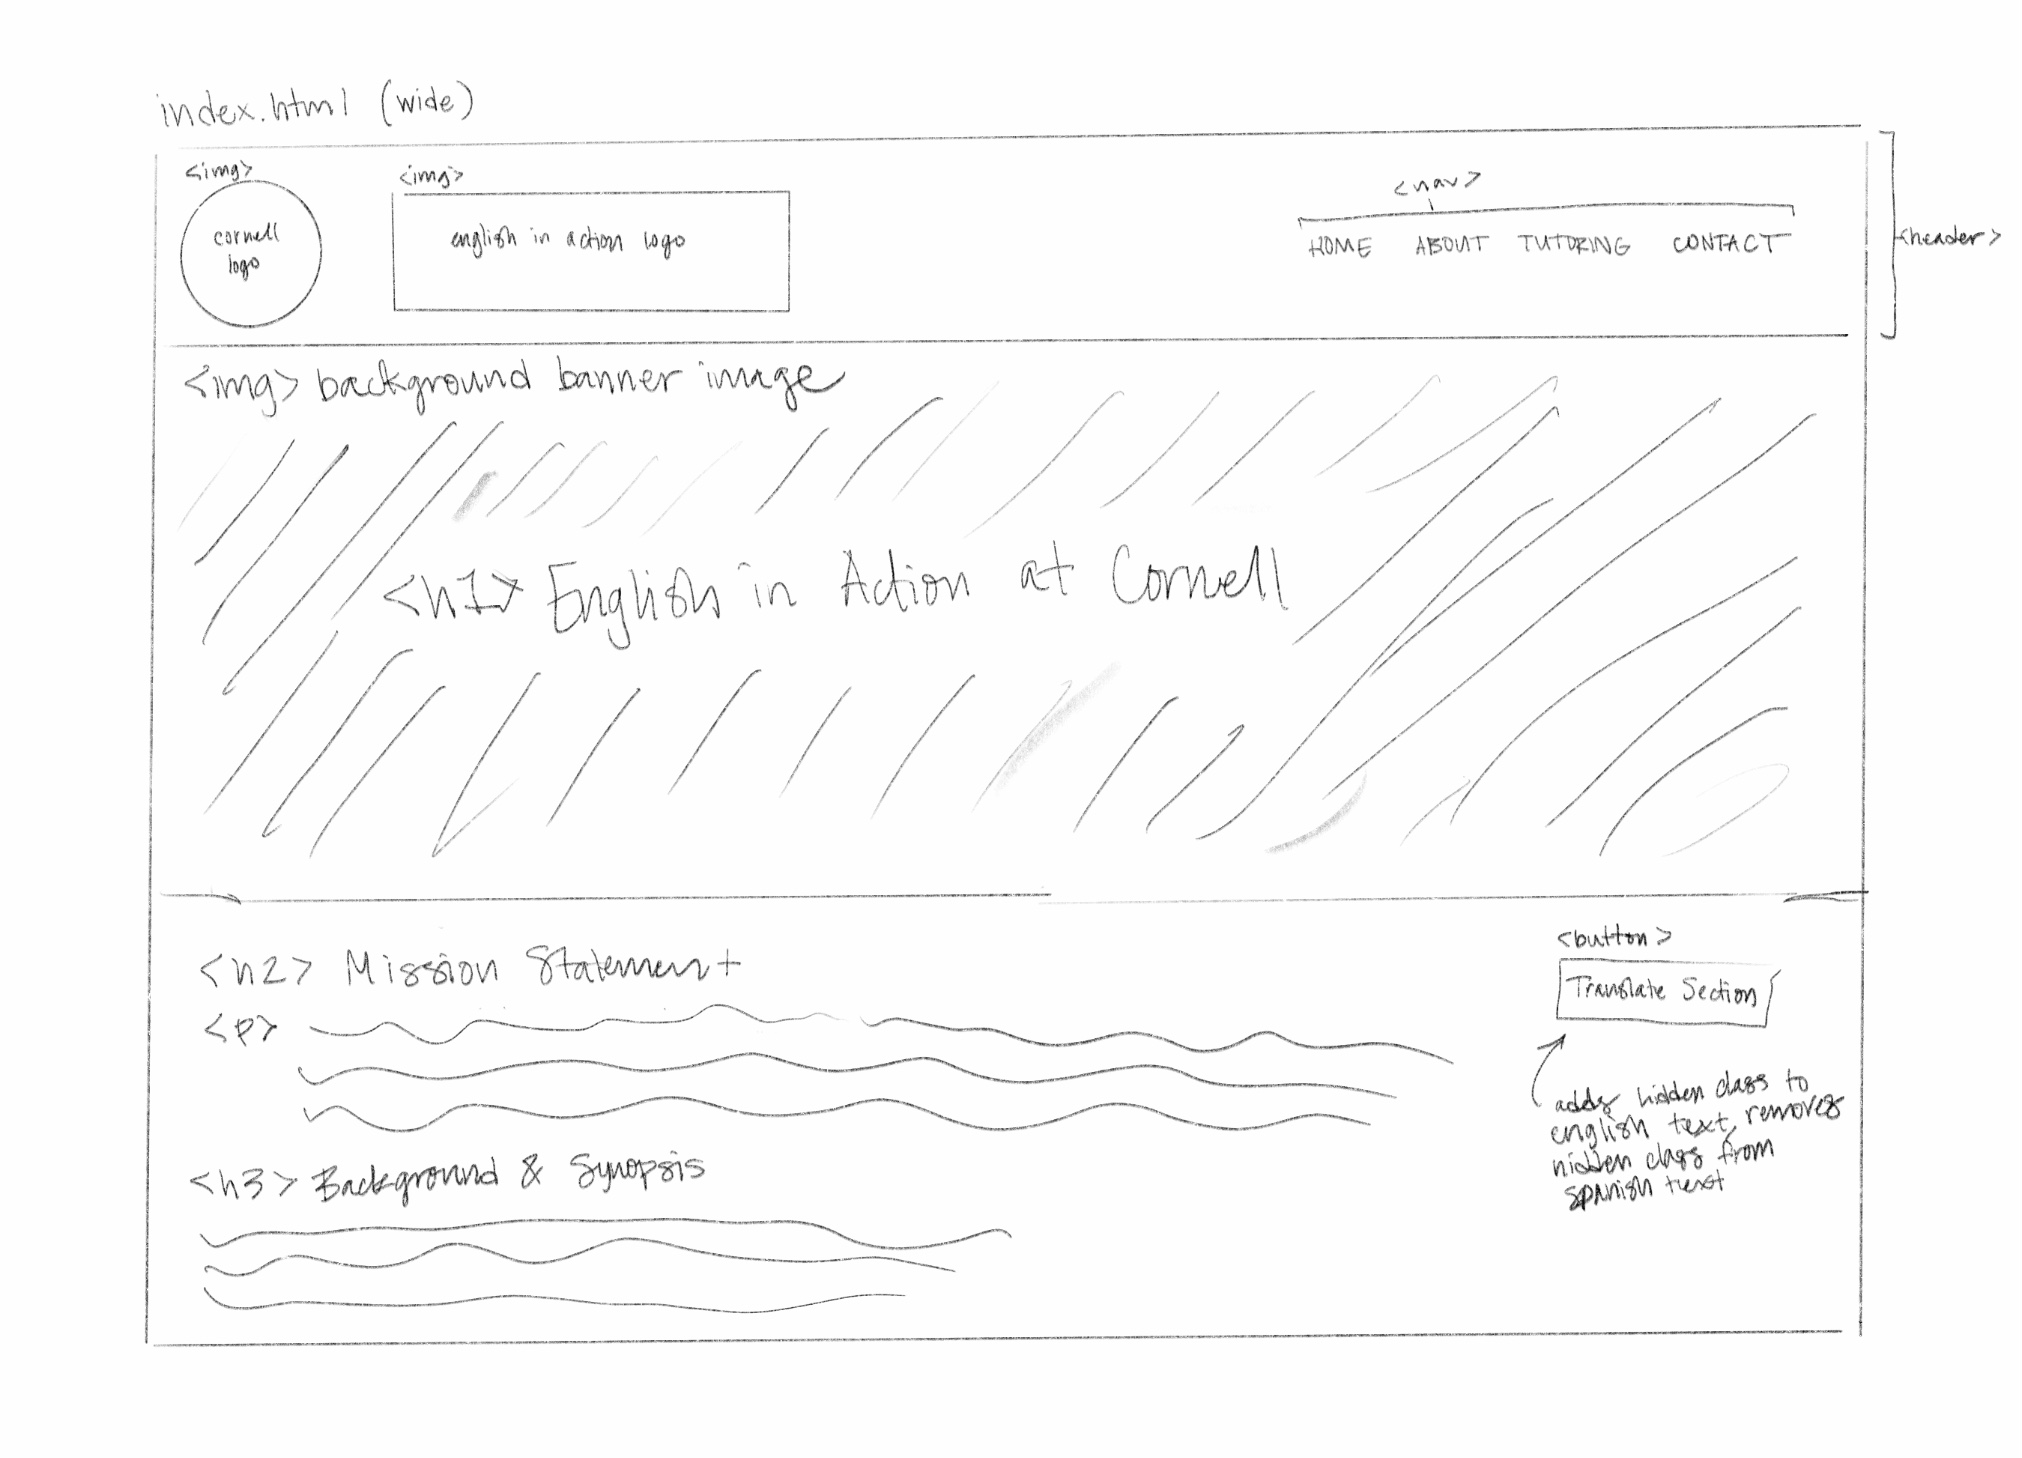 index.html (wide)
<img>
cornell
logo
<img>
english in action logo
<nav>
HOME ABOUT TUTORING CONTACT
<header>
<img> background banner image
<h1> English in Action at Cornell
<h2> Mission Statement
<p>
<button>
Translate Section
adds hidden class to
english text, removes
hidden class from
spanish text
<h3> Background & Synopsis